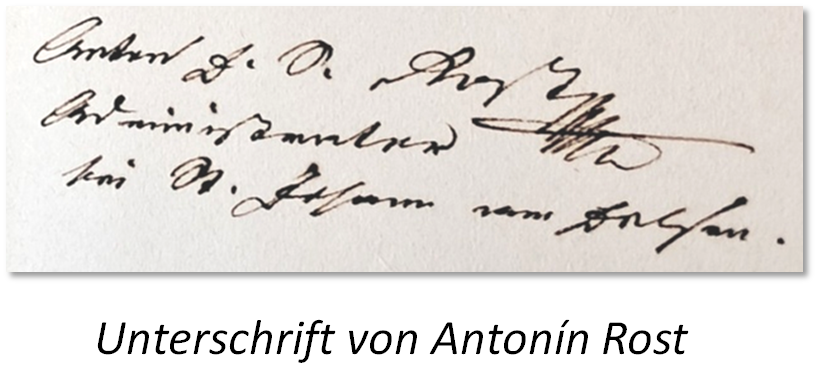 Anton F. S. Rost
Administrator
bei St. Johann am Felsen.
Unterschrift von Antonín Rost